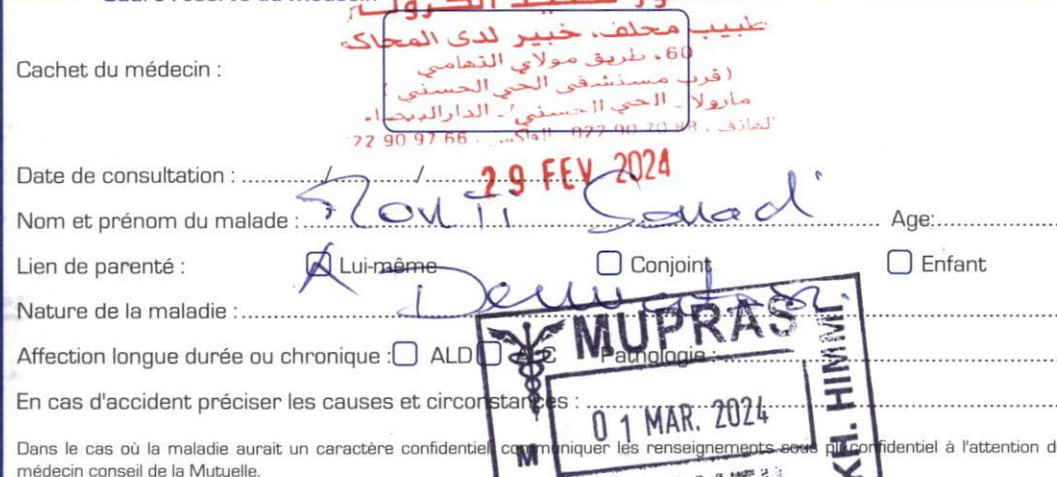 Cadre réservé au médecin
طبيب محلف، خبير لدى المحاكم
Cachet du médecin :
60، طريق مولاي التهامي
(قرب مستشفى الحي الحسني)
مارولا - الحي الحسني - الدار البيضاء
الهاتف : 022 90 70 88 الفاكس 22 90 97 66
Date de consultation : ............/............/............ 29 FEV 2024
Nom et prénom du malade : Souad Age:
Lien de parenté : Lui-même Conjoint Enfant
Nature de la maladie :
MUPRAS
Affection longue durée ou chronique : ALD ALC Pathologie :
En cas d'accident préciser les causes et circonstances :
01 MAR. 2024
KH. HIMMI
Dans le cas où la maladie aurait un caractère confidentiel communiquer les renseignements sous pli confidentiel à l'attention d
médecin conseil de la Mutuelle.
M